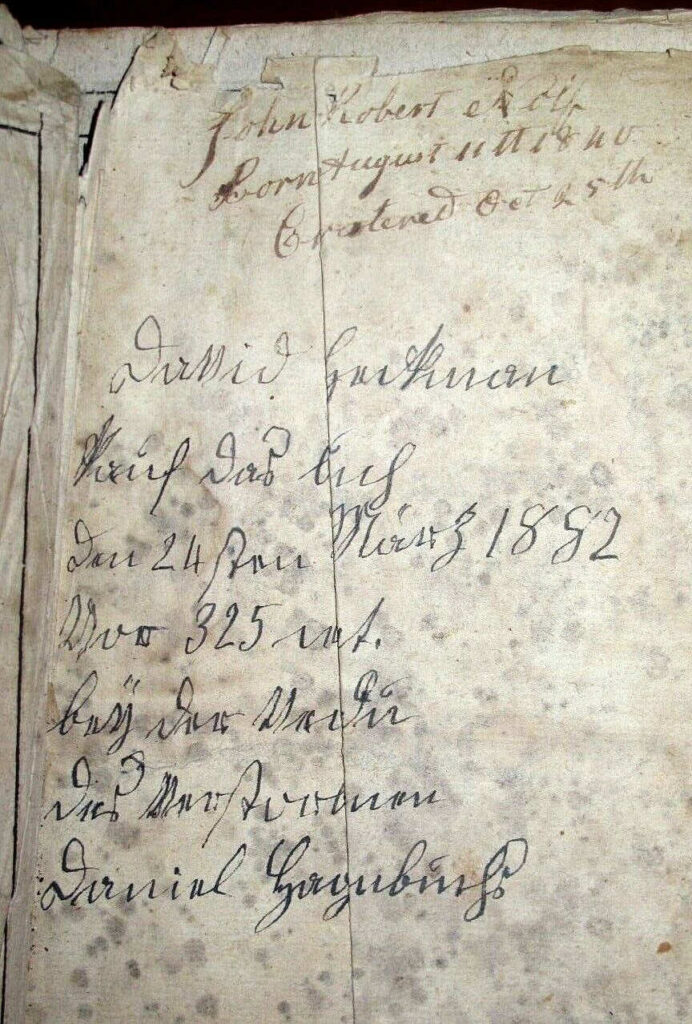 John Robert
Born August 11tt 1840
Oct 25th
David Heckman
kauf das buch
den 24sten März 1882
Vor 325 cet.
beÿ der Vedu
des Verstormen
Daniel Hagnbuchs